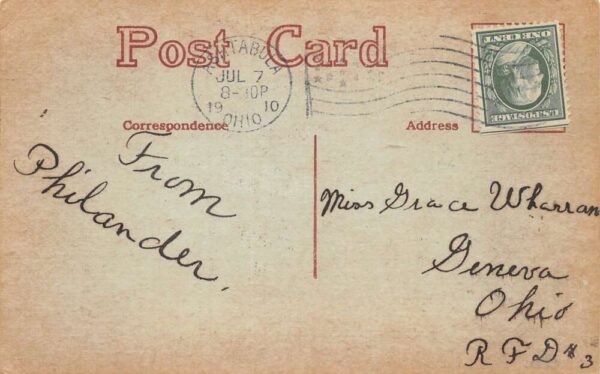 Post Card
ASHTABULA
JUL 7
8-30P
19 10
OHIO
ONE CENT
U.S. POSTAGE
Correspondence
Address
From
Philander.
Miss Grace Wharran
Geneva
Ohio
R F D # 3